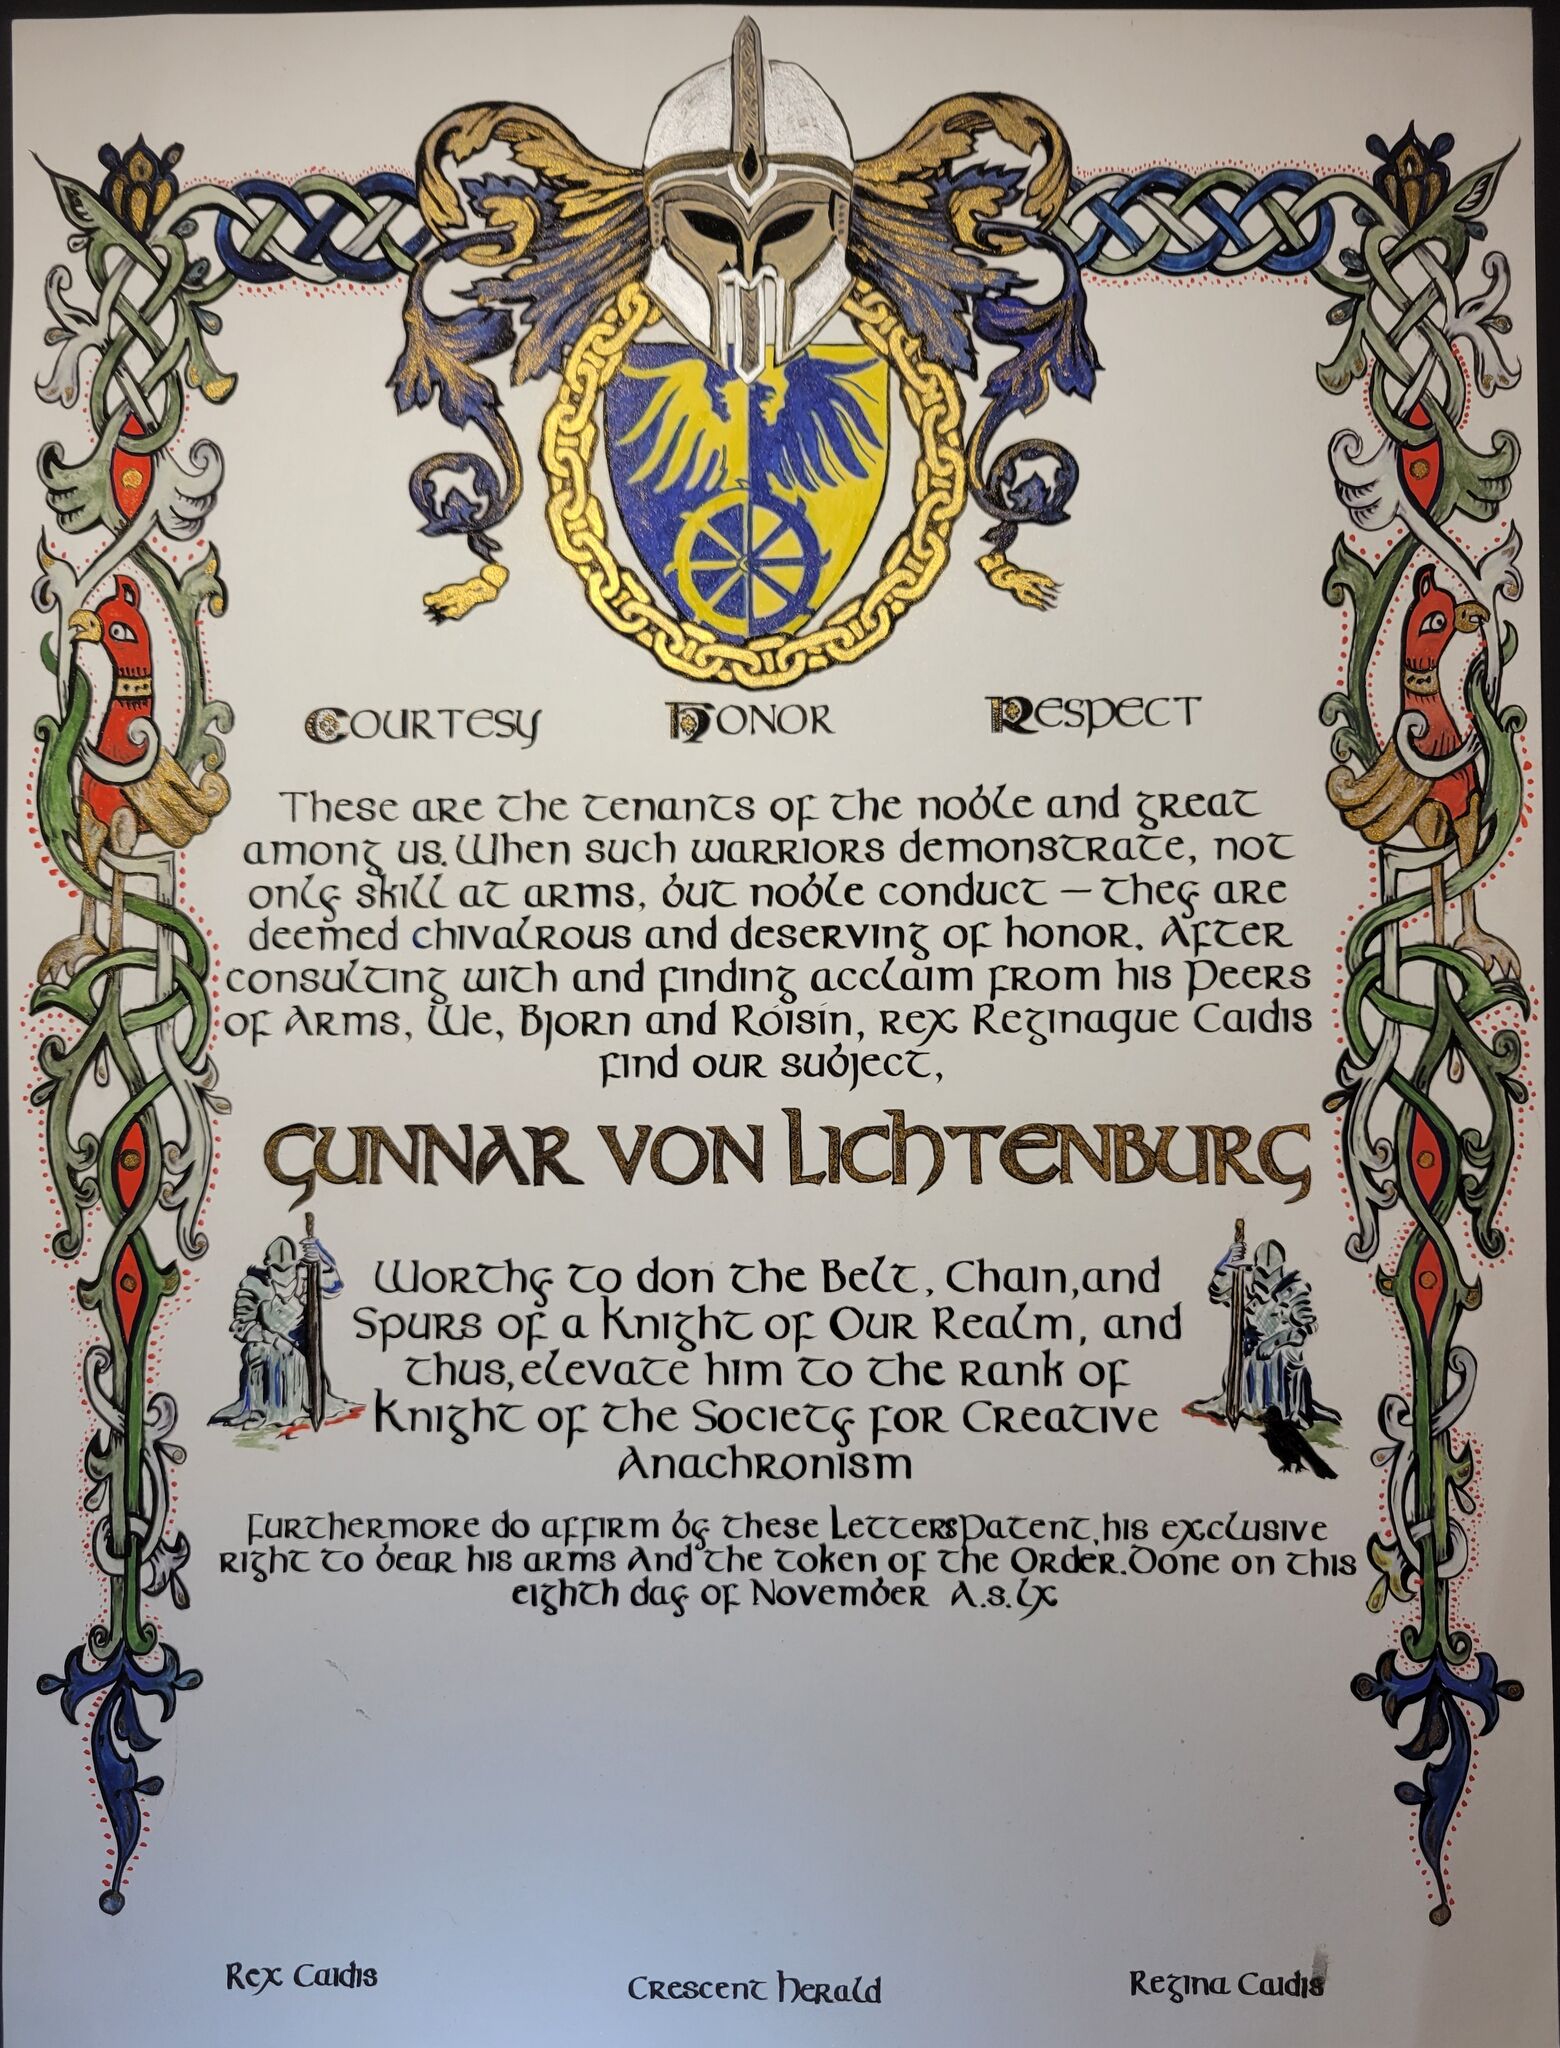 Courtesy Honor Respect
These are the tenants of the noble and great
among us. When such warriors demonstrate, not
only skill at arms, but noble conduct – they are
deemed chivalrous and deserving of honor. After
consulting with and finding acclaim from his Peers
of Arms, We, Bjorn and Róisín, rex Reginaque Caidis
find our subject,
Gunnar von Lichtenburg
Worthy to don the Belt, Chain, and
Spurs of a Knight of Our Realm, and
thus, elevate him to the rank of
Knight of the Society for Creative
Anachronism
Furthermore do affirm by these Letters Patent, his exclusive
right to bear his arms And the token of the Order. Done on this
eighth day of November A.S. lx
Rex Caidis Crescent Herald Regina Caidis